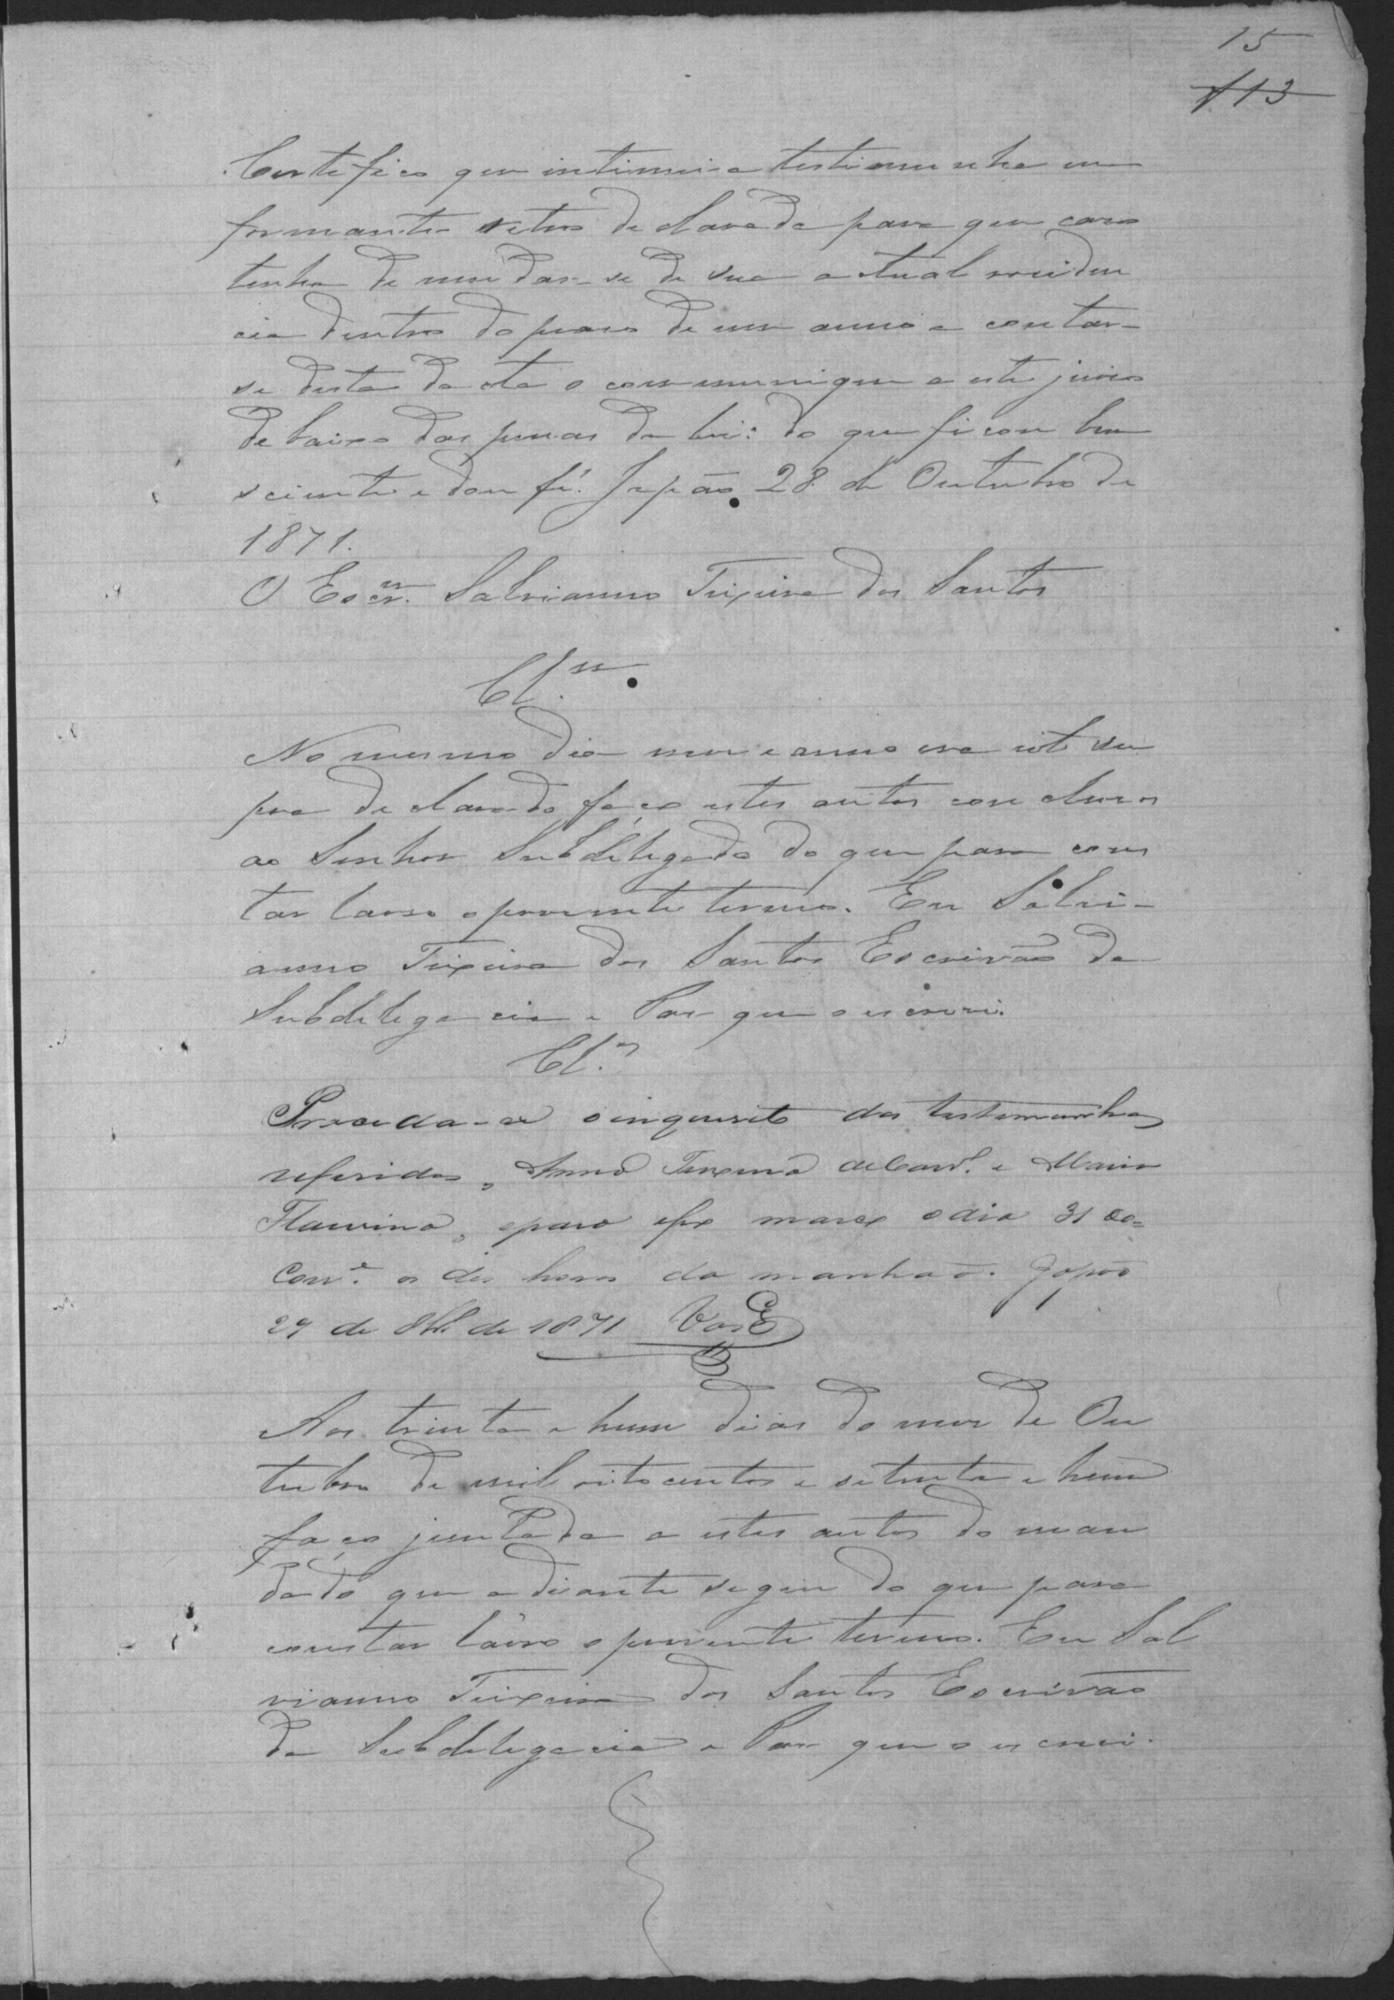 15
113
Certifico que intimei a testimunha in
formante retro declarada para que caso
tenha de mudar-se de sua actual residen
cia dentro do praso de um anno a contar-
se desta dacta o communique a este juiso
debaixo das penas da lei: do que ficou bem
sciente e dou fé. Japão 28 de Outubro de
1871.
O Escr.m Salvianno Teixeira dos Santos
Cl.m
No mesmo dia mez e anno era ut su
pra declarado faço estes autos concluzos
ao Senhor Subdelegado do que para cons
tar lavro o prezente termo. Eu Salvi-
anno Teixeira dos Santos Escrivão da
Subdelegacia e Paz que o escrevi.
Cl.m
Proceda-se o inquerito das testemunhas
referidas, Anna Teixeira de Carv.º e Maria
Flauvina, e para isso marco o dia 31 do
Corr.e as dez horas da manhaã. Japão
29 de 8br.º de 1871
Aos trinta e hum dias do mez de Ou
tubro de mil oitocentos e setenta e hum
faço juntada a estes autos do man
dado que adiante segue do que para
constar lavro o prezente termo. Eu Sal
vianno Teixeira dos Santos Escrivão
da Subdelegacia e Paz que o escrevi.